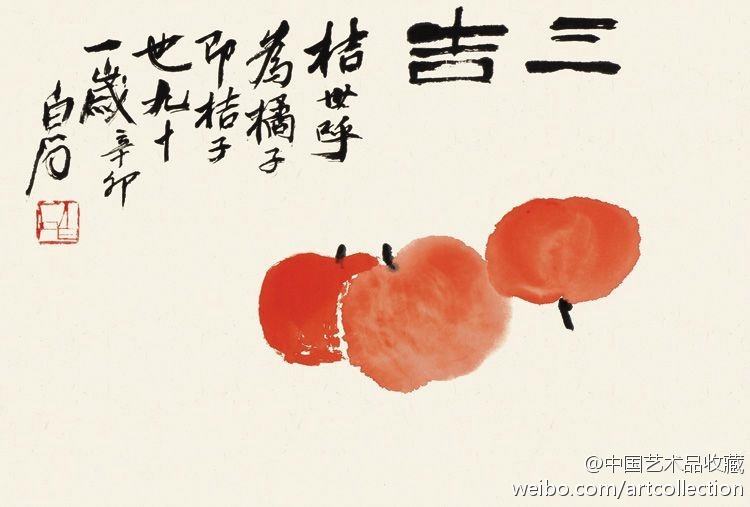 三吉
桔世呼
為橘子
即桔子
也九十
一歲辛卯
白石
@中国艺术品收藏
weibo.com/artcollection